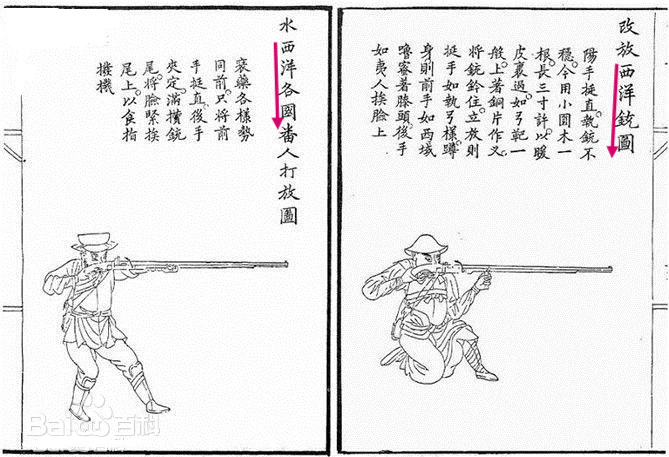 改放西洋銃圖
陽手挺直。執銃不
穩。今用小圓木一
根。長三寸許。以暖
皮裹過。如弓靶一
般。上著銅片作叉
將銃鈐住。立放則
挺手如執弓樣。蹲
身則前手如西域
嚕審著膝頭。後手
如夷人挨臉上
水西洋各國番人打放圖
裝藥各樣勢
同前。只將前
手挺直。後手
夾定。滿攢銃
尾。將臉緊挨
尾上。以食指
撥機
Baidu百科